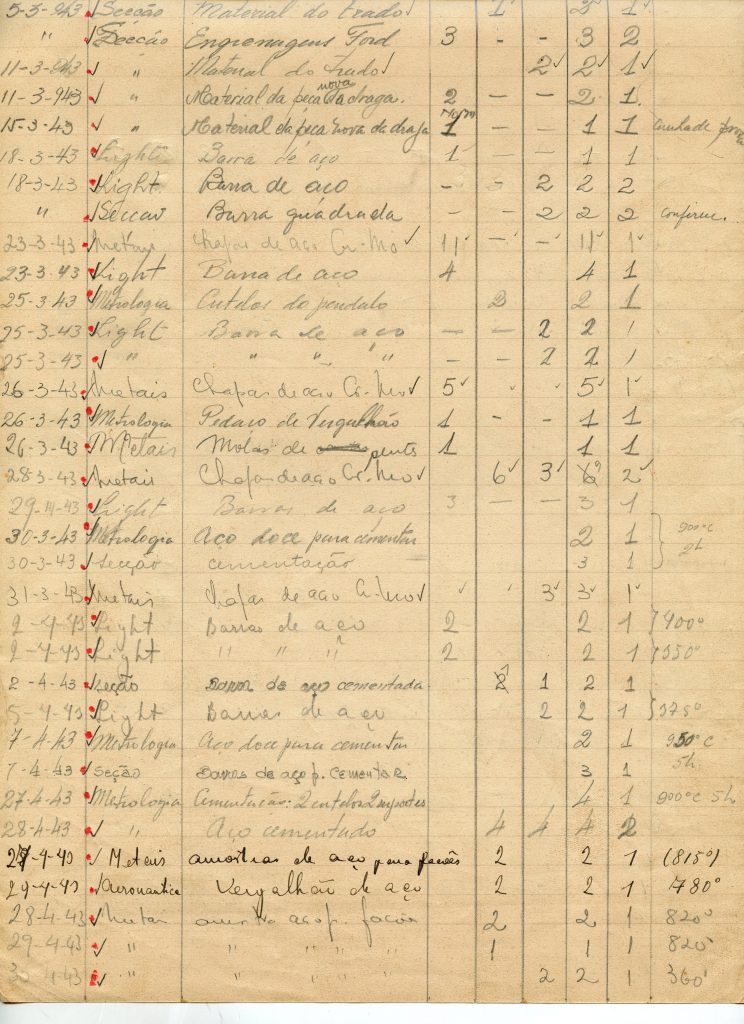 5-3-943 Secção Material do Frado 1 3 1
" Secção Engrenagens Ford 3 - - 3 2
11-3-943 " Material do Frado 2 2 1
11-3-943 " Material da peça nova da draga. 2 - - 2 1
15-3-43 " Material da peça nova da draga 1 - - 1 1
18-3-43 Light Barra de aço 1 - - 1 1
18-3-43 Light Barra de aço - - 2 2 2
" Seccão Barra quadrada - - 2 2 2 confirme.
23-3-43 Metais Chapas de aço Cr-Mo 11 - - 11 1
23-3-43 Light Barra de aço 4 4 1
25-3-43 Metrologia Cutelos do pendulo 2 2 1
25-3-43 Light Barra de aço - - 2 2 1
25-3-43 " " " " " - - 2 2 1
26-3-43 Metais Chapas de aço Cr-Mo 5 5 1
26-3-43 Metrologia Pedaço de Vergulhão 1 - - 1 1
26-3-43 Metais Molas de pente 1 1 1
28-3-43 Metais Chapas de aço Cr-Mo 6 3 6? 2
29-11-43 Light Barras de aço 3 - - 3 1
30-3-43 Metrologia Aço doce para cementar 2 1 900°C
30-3-43 Secção cementação 3 1 2h
31-3-43 Metais Chapas de aço Cr-Mo 3 3 1
2-4-43 Light Barras de aço 2 2 1 400°
2-4-43 Light " " " 2 2 1 350°
2-4-43 Seção Barra de aço cementada. 2 1 2 1
5-4-43 Light Barras de aço 2 2 1 375°
7-4-43 Metrologia Aço doce para cementar 2 1 950°C
7-4-43 Seção Barras de aço p. cementar 3 1 5h
27-4-43 Metrologia Cementação: 2 cutelos 2 suportes 4 1 900°C 5h
28-4-43 " Aço cementado 4 4 4 2
27-4-43 Metais amostras de aço para facões 2 2 1 (815°)
29-4-43 Aeronautica Vergalhão de aço 2 2 1 780°
28-4-43 Metai amostra aço p. facão 2 2 1 820°
29-4-43 " " " " " 1 1 1 820°
30 4-43 " " " " " 2 2 1 360°